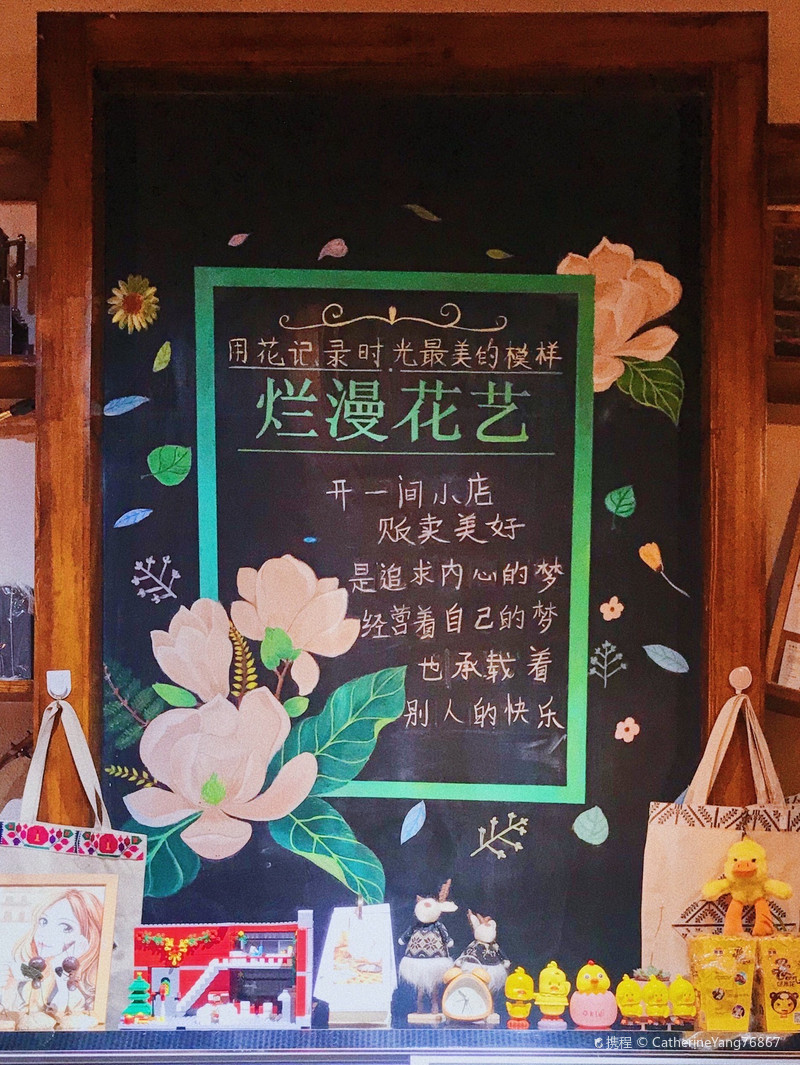 用花记录时光最美的模样
烂漫花艺
开一间小店
贩卖美好
是追求内心的梦
经营着自己的梦
也承载着
别人的快乐
携程 © CatherineYang76867